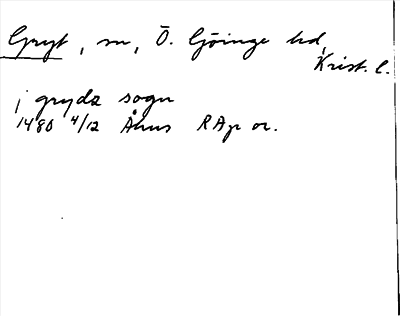 Gryt, sn, Ö. Göinge hd,
Krist. l.
j grydæ sogn
1480 4/12 Åhus RAp or.